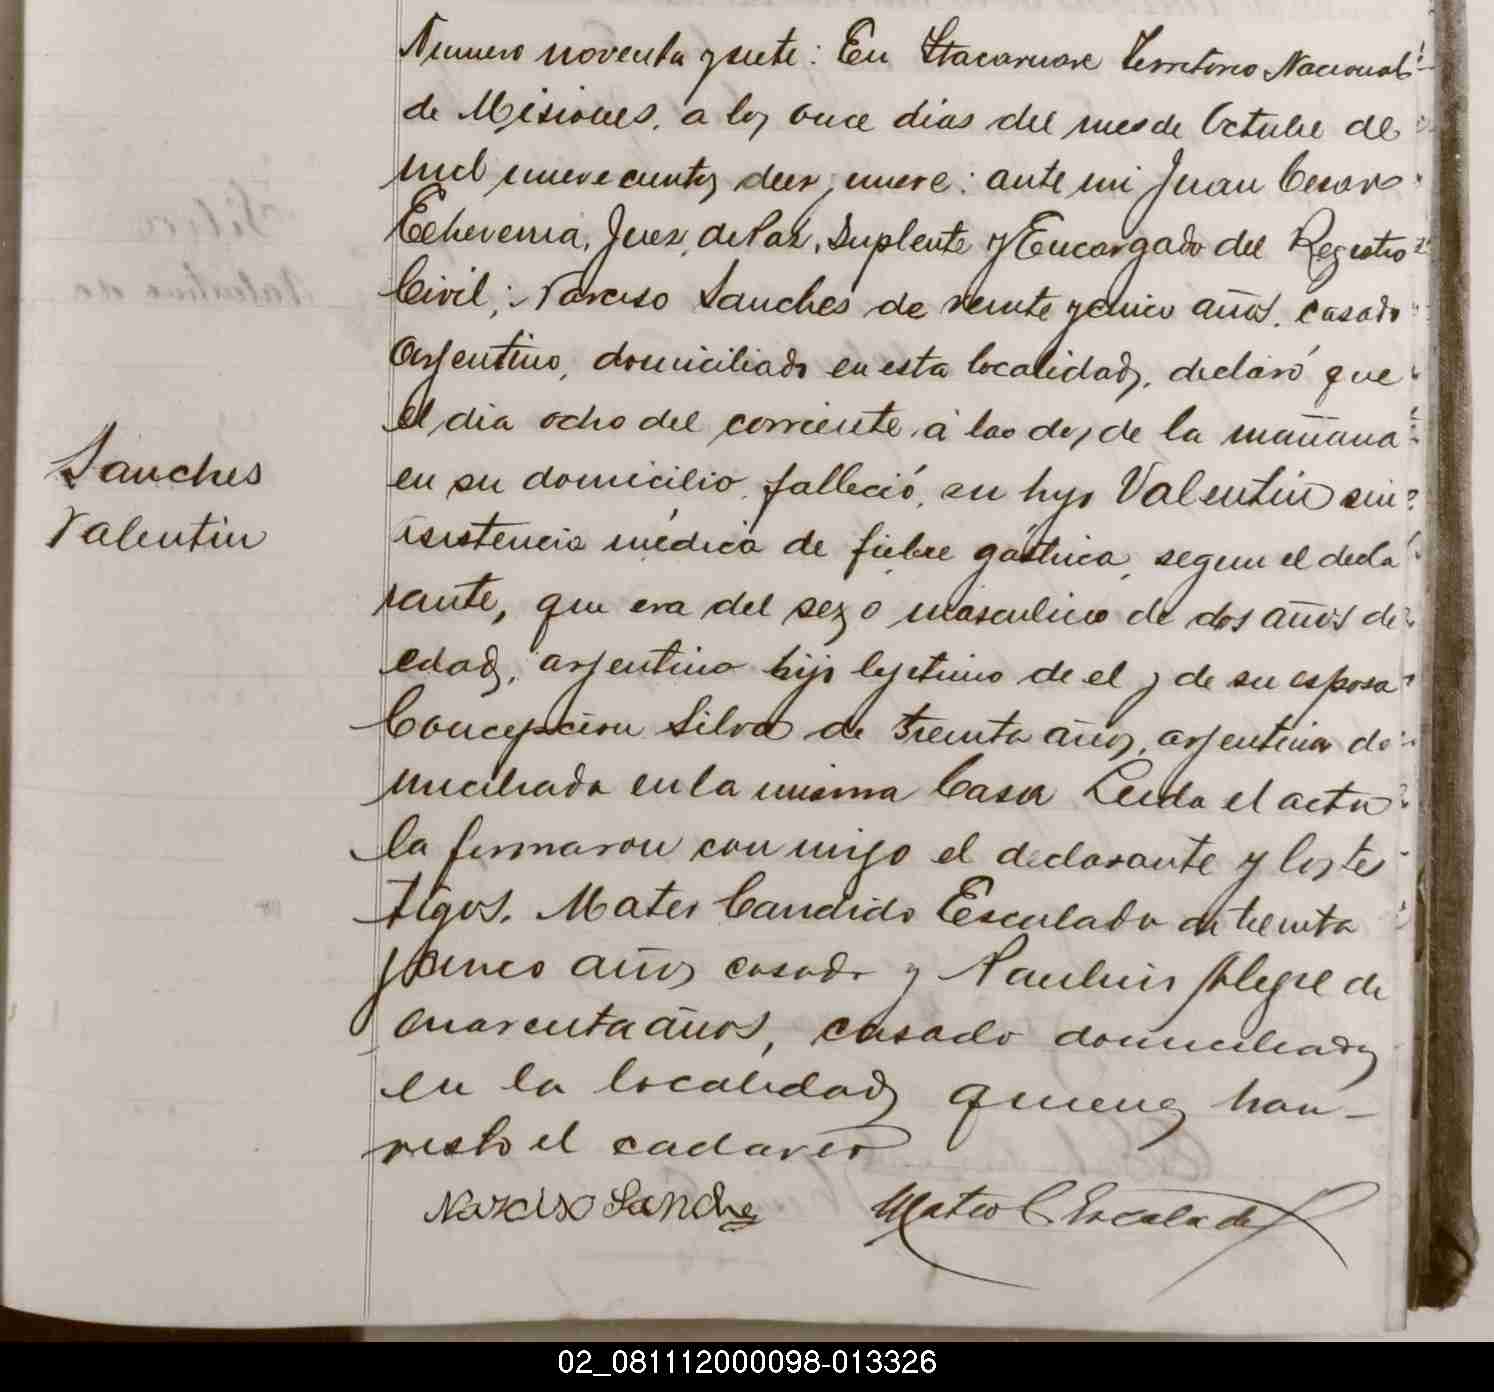 Numero noventa y siete: En Itacaruare Territorio Nacional
de Misiones, a los once dias del mes de Octubre de
mil nuevecientos diez y nueve: ante mi Juan Cesar
Echeverria, Juez de Paz, Suplente y Encargado del Registro
Civil; Narciso Sanches de veinte y cinco años, casado
argentino, domiciliado en esta localidad, declaró que
el dia ocho del corriente á las dos de la mañana
Sanches
en su domicilio, falleció, su hijo Valentin sin
Valentin
asistencia médica de fiebre gástrica, segun el decla
rante, que era del sexo masculino de dos años de
edad, argentino hijo lejitimo de el y de su esposa
Concepcion Silva de treinta años, argentina do
miciliada en la misma Casa Leida el acta
la firmaron conmigo el declarante y los tes
tigos. Mateo Candido Escalada de treinta
y cinco años casado y Alegre de
cuarenta años, casado domiciliados
en la localidad quienes han
visto el cadaver
Narciso Sanches Mateo C Escalada
02_081112000098-013326